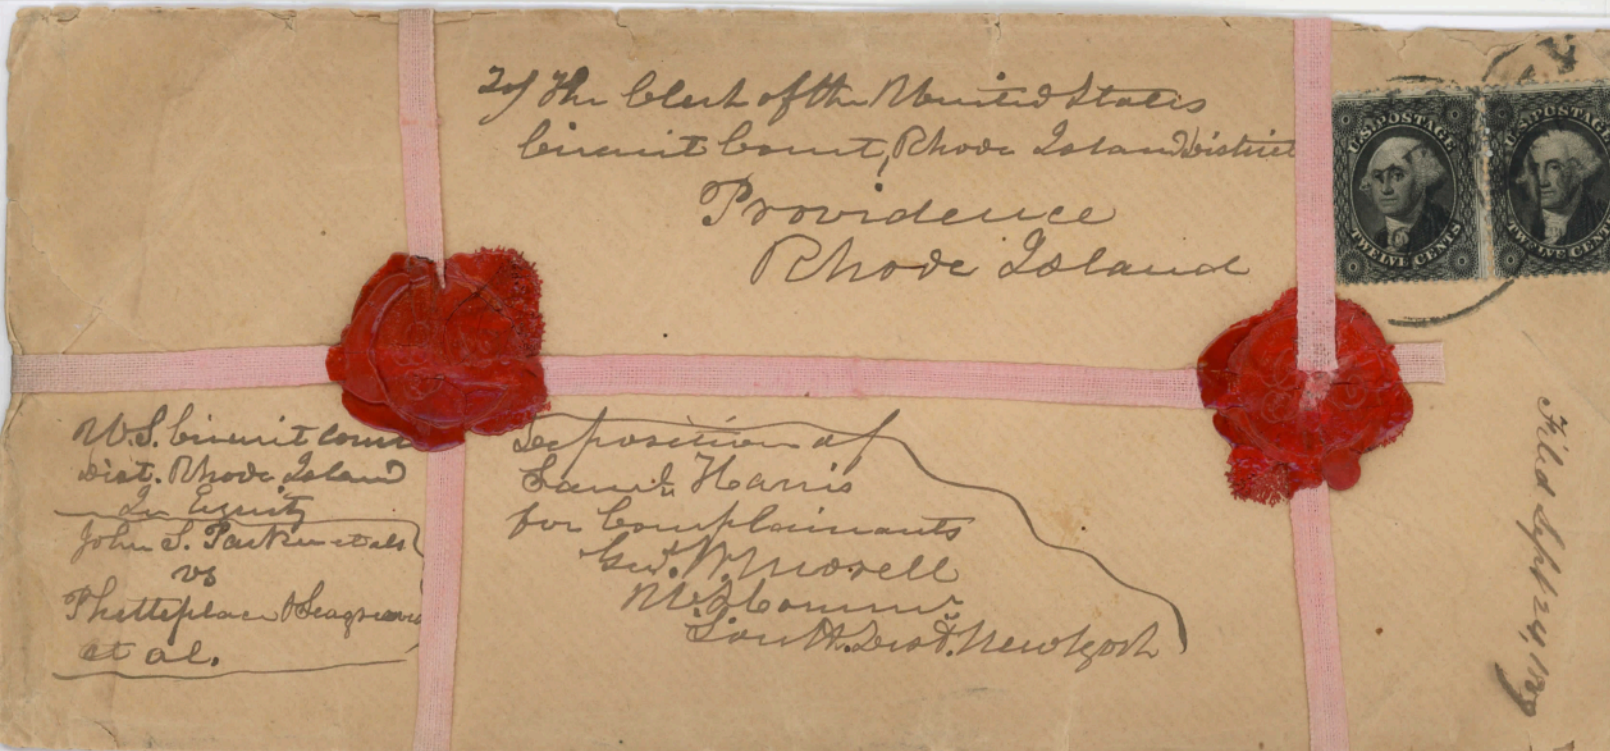 To/ The Clerk of the United States
Circuit Court, Rhode Island District
Providence
Rhode Island
U.S. POSTAGE
TWELVE CENTS
U.S. POSTAGE
TWELVE CENTS
U.S. Circuit Court
Dist. Rhode Island
In Equity
John S. Parker et als
vs
Phetteplace & Seagrave
et al.
Deposition of
Saml. Harris
for Complainants
Geo. W. Morell
U.S. Commr.
South. Dist. New York
Filed Sept 24, 1859